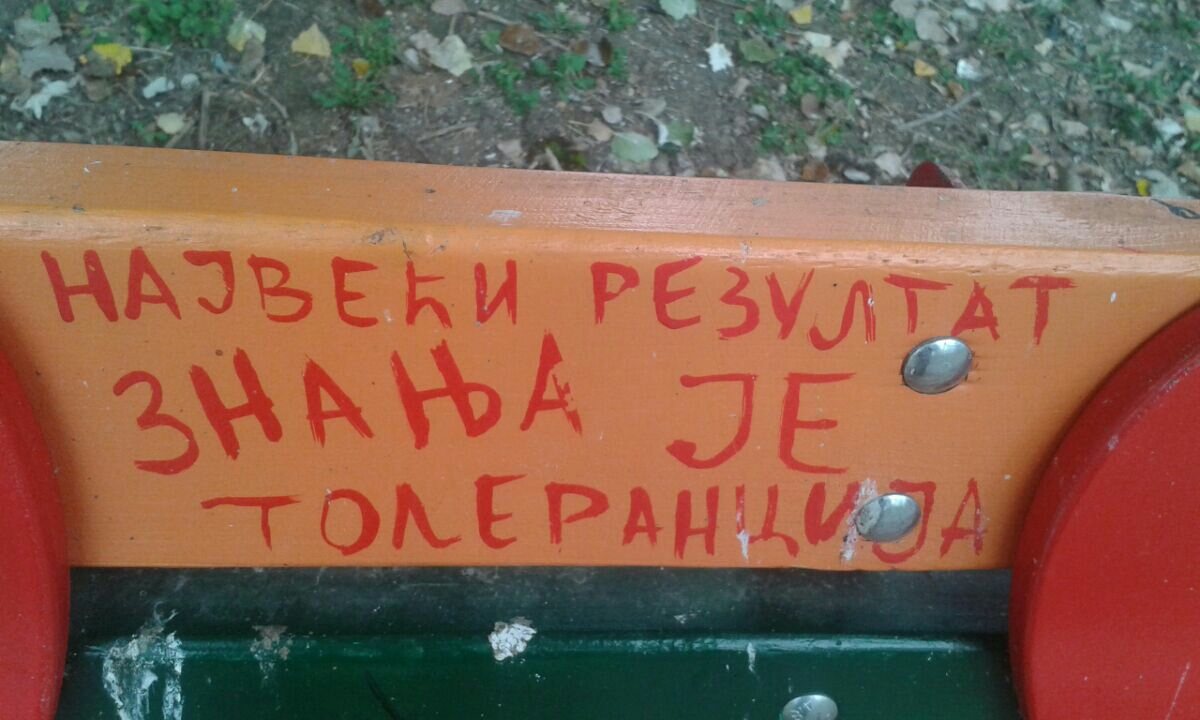 НАЈВЕЋИ РЕЗУЛТАТ
ЗНАЊА ЈЕ
ТОЛЕРАНЦИЈА